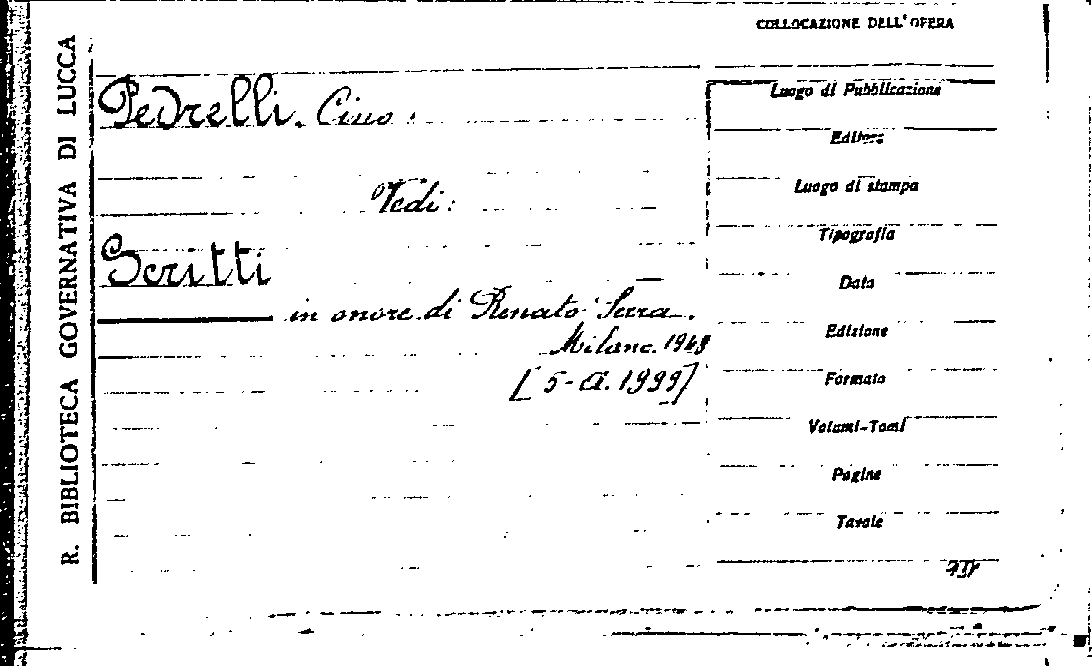 R. BIBLIOTECA GOVERNATIVA DI LUCCA
COLLOCAZIONE DELL'OPERA
Pedrelli. Cino.
Vedi:
Scritti
in onore di Renato Serra.
Milano. 1948
[5-a. 1999]
Luogo di Pubblicazione
Editore
Luogo di stampa
Tipografia
Data
Edizione
Formato
Volumi-Tomi
Pagine
Tavole